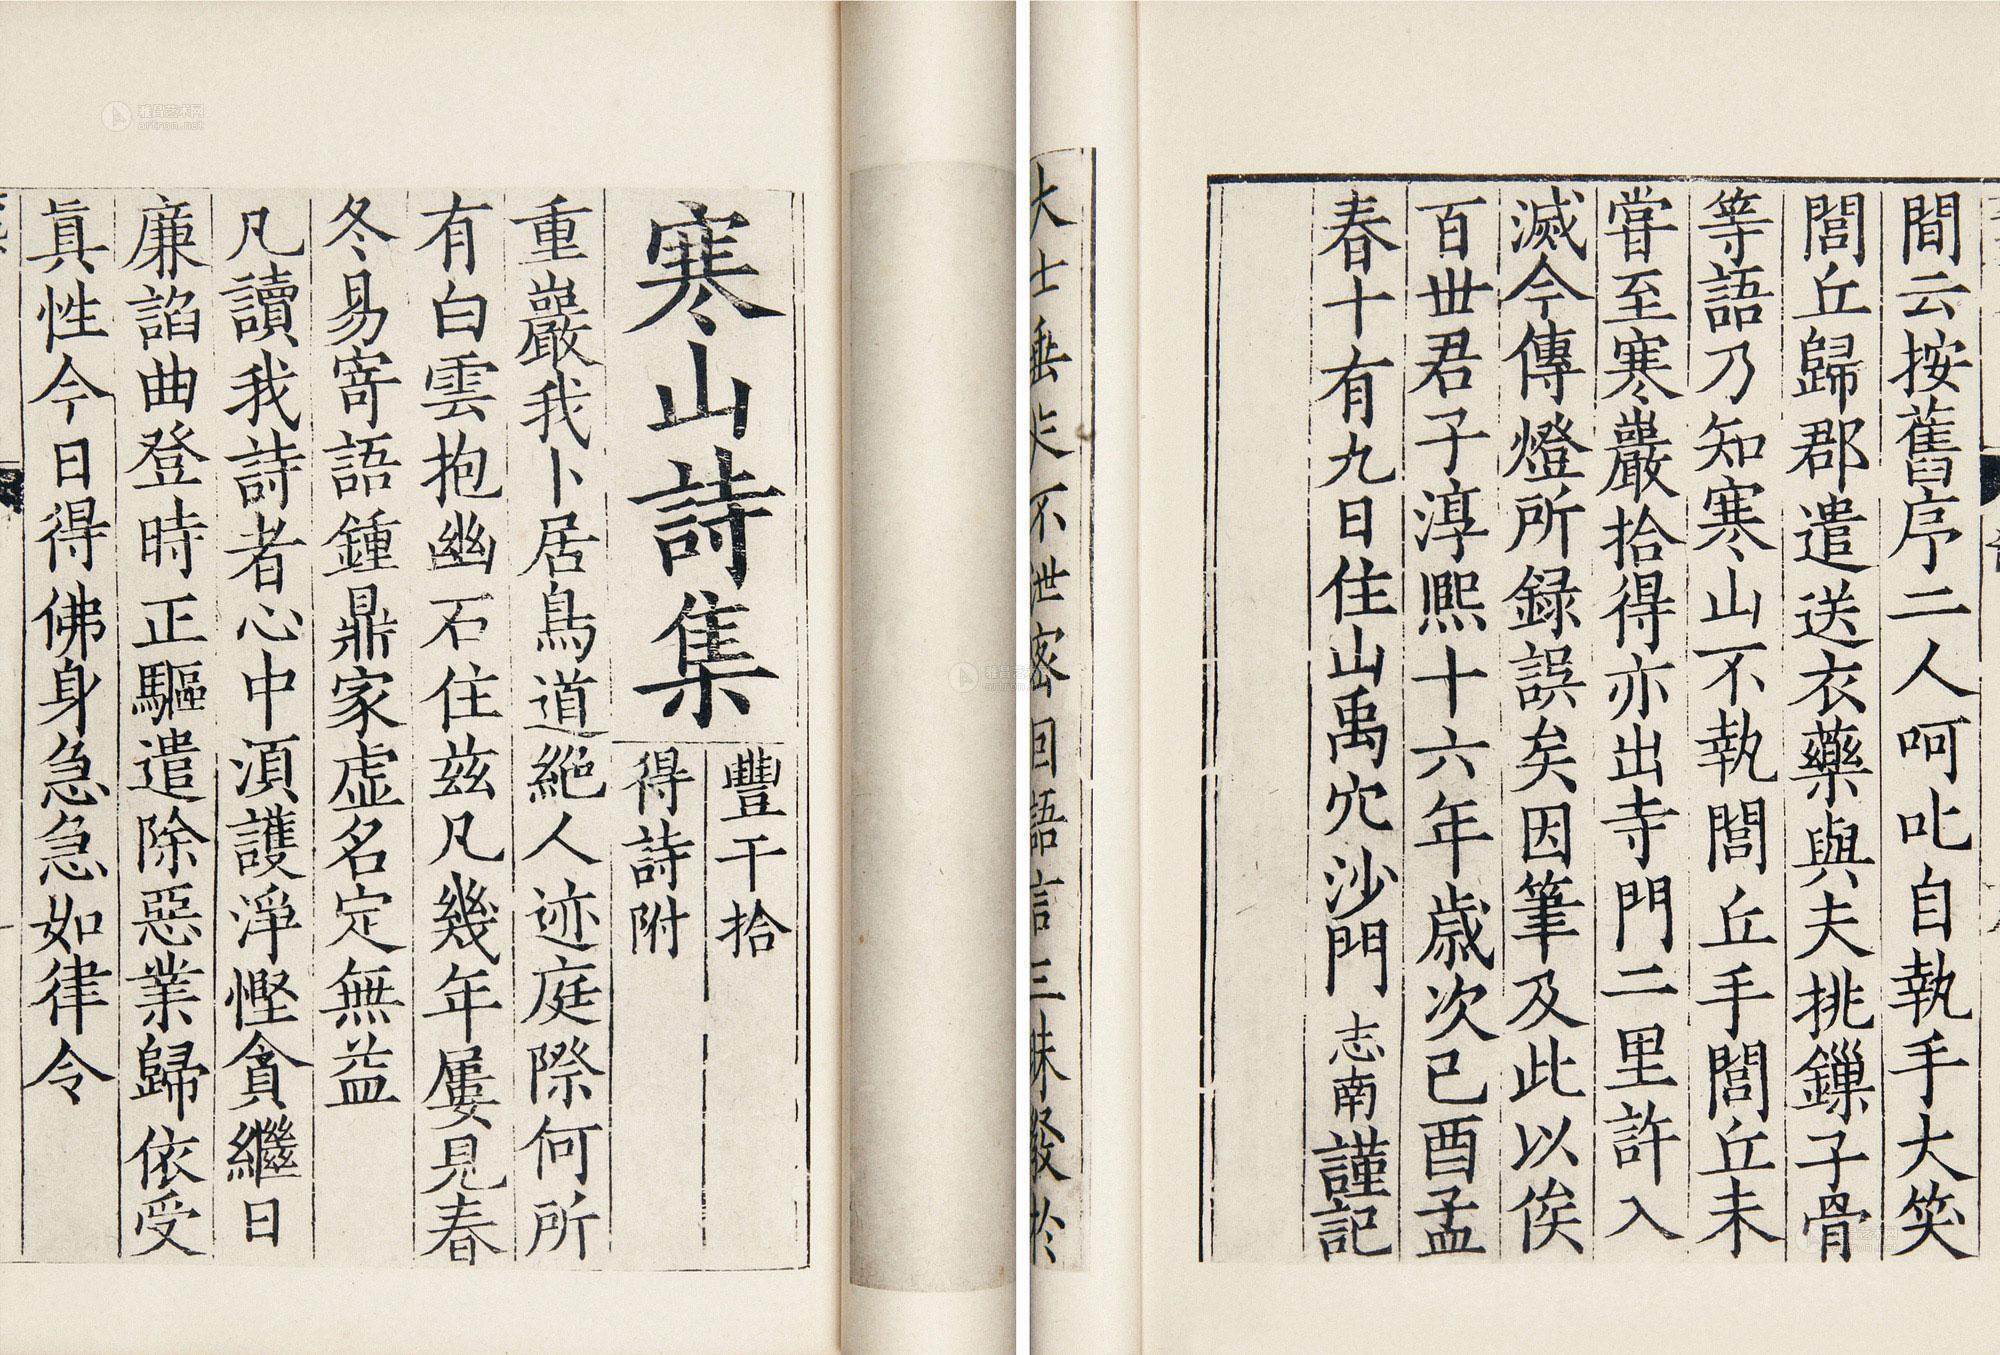 間云按舊序二人呵叱自執手大笑
閭丘歸郡遣送衣藥與夫挑鏁子骨
等語乃知寒山不執閭丘手閭丘未
甞至寒巖拾得亦出寺門二里許入
滅今傳燈所録誤矣因筆及此以俟
百世君子淳熈十六年歲次已酉孟
春十有九日住山禹穴沙門志南謹記
大士垂不泄密因語言三昧發於
寒山詩集
豐干拾
得詩附
重巖我卜居鳥道絶人迹庭際何所
有白雲抱幽石住茲凡幾年屢見春
冬易寄語鍾鼎家虚名定無益
凡讀我詩者心中湏護淨慳貪繼日
廉諂曲登時正驅遣除惡業歸依受
真性今日得佛身急急如律令
雅昌艺术网
artron.net